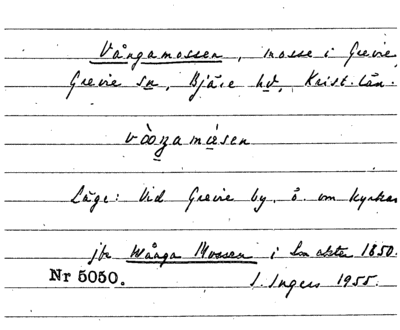 Vångamossen, mosse i Grevie,
Grevie sn, Bjäre hd, Krist. län.
Läge: Vid Grevie by. ö. om kyrkan
jfr Wånga Mossen i Lm akter 1850.
Nr 5050. I. Ingers 1955.